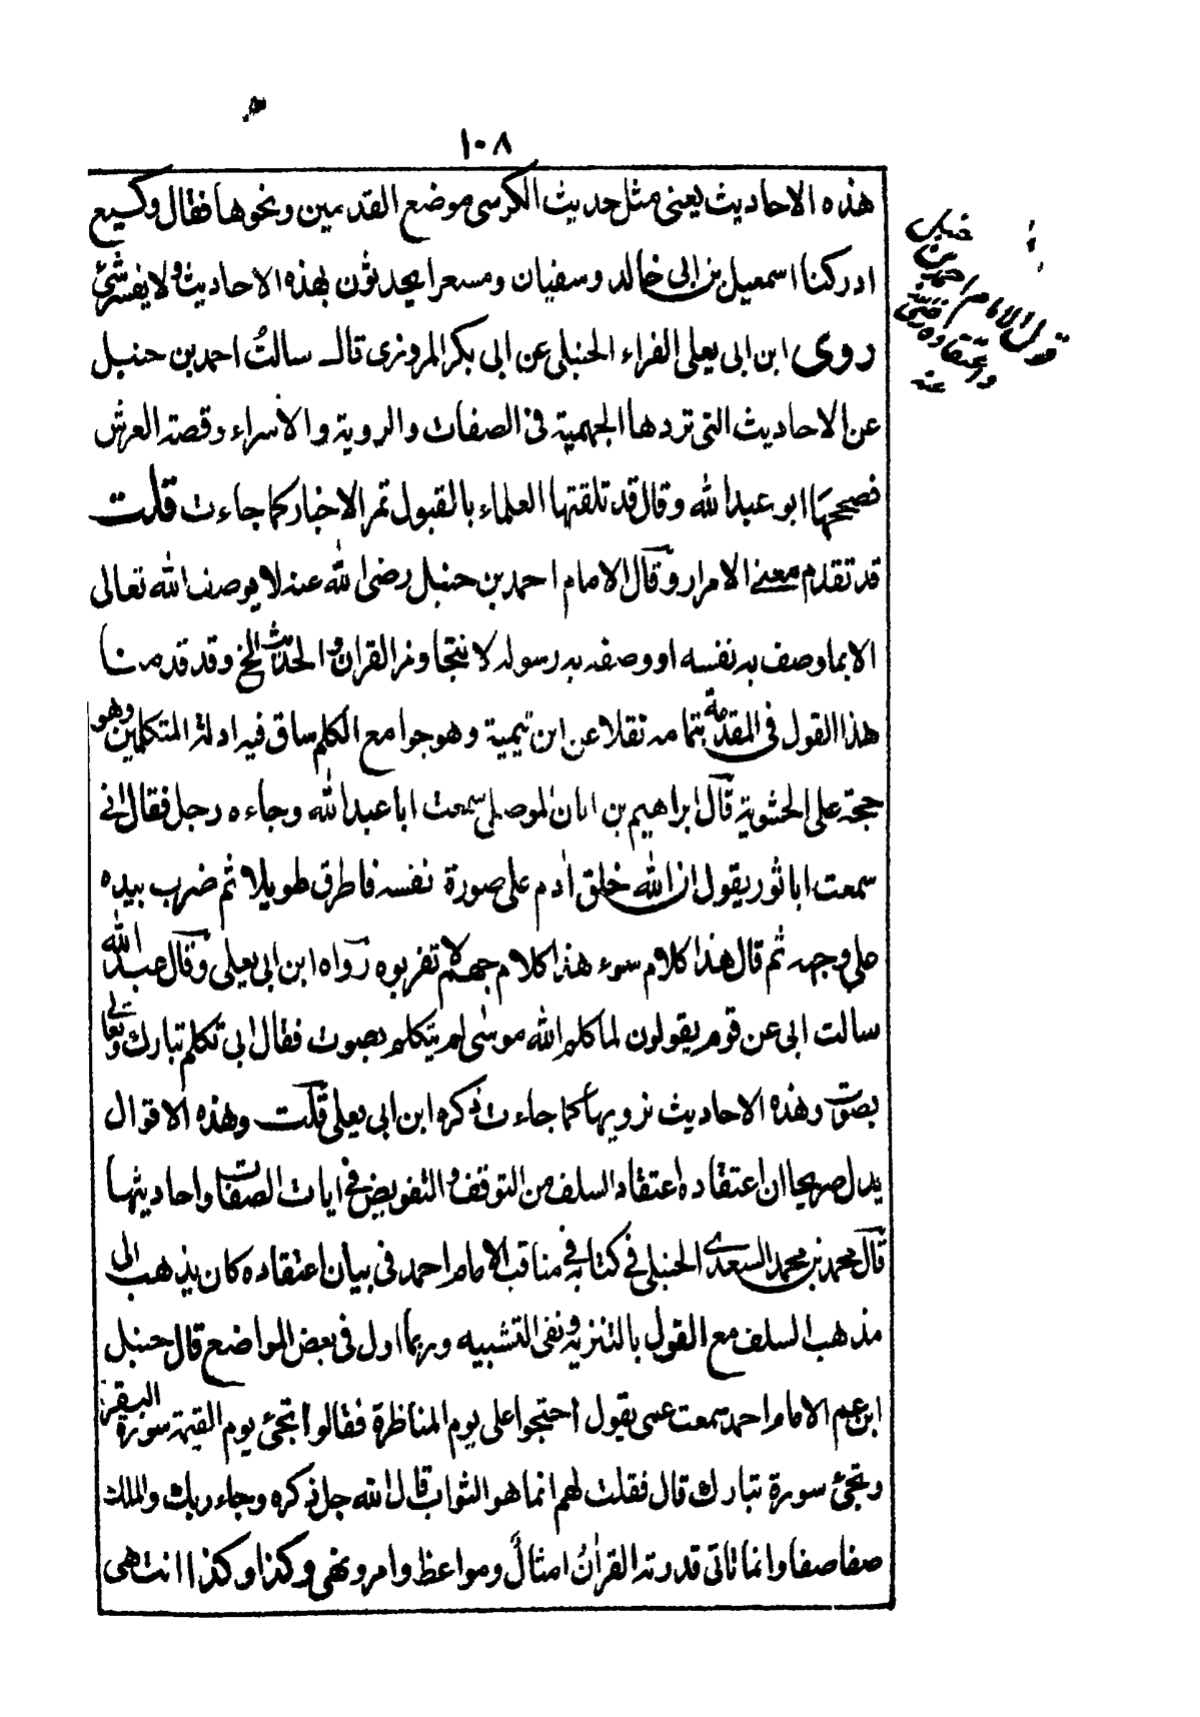 ١٠٨
هذه الاحاديث يعنى مثل حديث الكرسى موضع القدمين ونحوها فقال وكيع
ادركنا اسمعيل بن ابى خالد وسفيان ومسعرا يحدثون بهذه الاحاديث ولا يفسر شئ
روى ابن ابى يعلى الفراء الحنبلى عن ابى بكر المروزى قال سالتُ احمد بن حنبل
عن الاحاديث التى تردها الجهمية فى الصفات والروية والاسراء وقصة العرش
فصححها ابو عبد الله وقال قد تلقتها العلماء بالقبول تمر الاخبار كما جاءت قلت
قد تقدم معنى الامرار وقال الامام احمد بن حنبل رضى الله عنه لا يوصف الله تعالى
الا بما وصف به نفسه او وصفه به رسوله لا نتجاوز القران والحديث الخ وقد قدمنا
هذا القول فى المقدمة بتمامه نقلا عن ابن تيمية وهو جوامع الكلم ساق فيه ادلة المتكلمين وهو
حجة على الحشوية قال ابراهيم بن ابان الموصلى سمعت ابا عبد الله وجاءه رجل فقال انى
سمعت ابا ثور يقول ان الله خلق ادم على صورة نفسه فاطرق طويلا ثم ضرب بيده
على وجهه ثم قال هذا كلام سوء هذا كلام جهم لا تقربوه رواه ابن ابى يعلى وقال عبد الله
سالت ابى عن قوم يقولون لما كلم الله موسى لم يتكلم بصوت فقال ابى تكلم تبارك وتعالى
بصوت وهذه الاحاديث نرويها كما جاءت ذكره ابن ابى يعلى قلت وهذه الاقوال
يدل صريحا ان اعتقاده اعتقاد السلف من التوقف والتفويض فى ايات الصفات واحاديثها
قال محمد بن محمد السعدى الحنبلى فى كتابه فى مناقب الامام احمد فى بيان اعتقاده كان يذهب الى
مذهب السلف مع القول بالتنزيه ونفى التشبيه وربما اول فى بعض المواضع قال حنبل
ابن عم الامام احمد سمعت عمى يقول احتجوا على يوم المناظرة فقالوا تجئ يوم القيمة سورة البقرة
وتجئ سورة تبارك قال فقلت لهم انما هو الثواب قال الله جل ذكره وجاء ربك والملك
صفا صفا وانما تاتى قدرته القرانُ امثالٌ ومواعظ وامر ونهى وكذا وكذا انتهى
قول الامام احمد بن حنبل
واعتقاده رضى الله
عنه